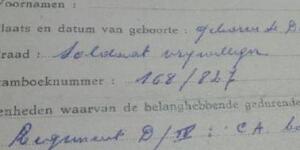 Voornamen :
Plaats en datum van geboorte : geboren te B
Graad : Soldaat vrijwilliger
Stamboeknummer : 168/827
enheden waarvan de belanghebbende gedurende
Regiment D/IV : CA